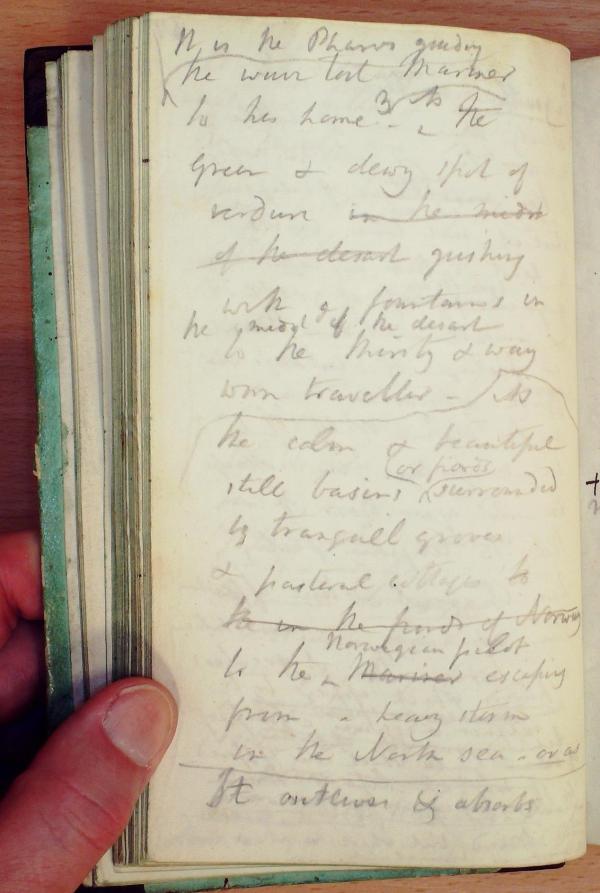 It is the Pharos guiding
the wave lost Mariner
to his home - As the
green & dewy spot of
verdure in the midst
of the desart gushing
with fountains in
the midst of the desart
to the thirsty & way
worn traveller - As
the calm & beautiful
or fiords
still basins (surrounded
by tranquill groves
& pastoral cottages to
the in the fiords of Norway
Norwegian pilot
to the Mariner escaping
from a heavy storm
in the North sea - or as
It outlives & absorbs